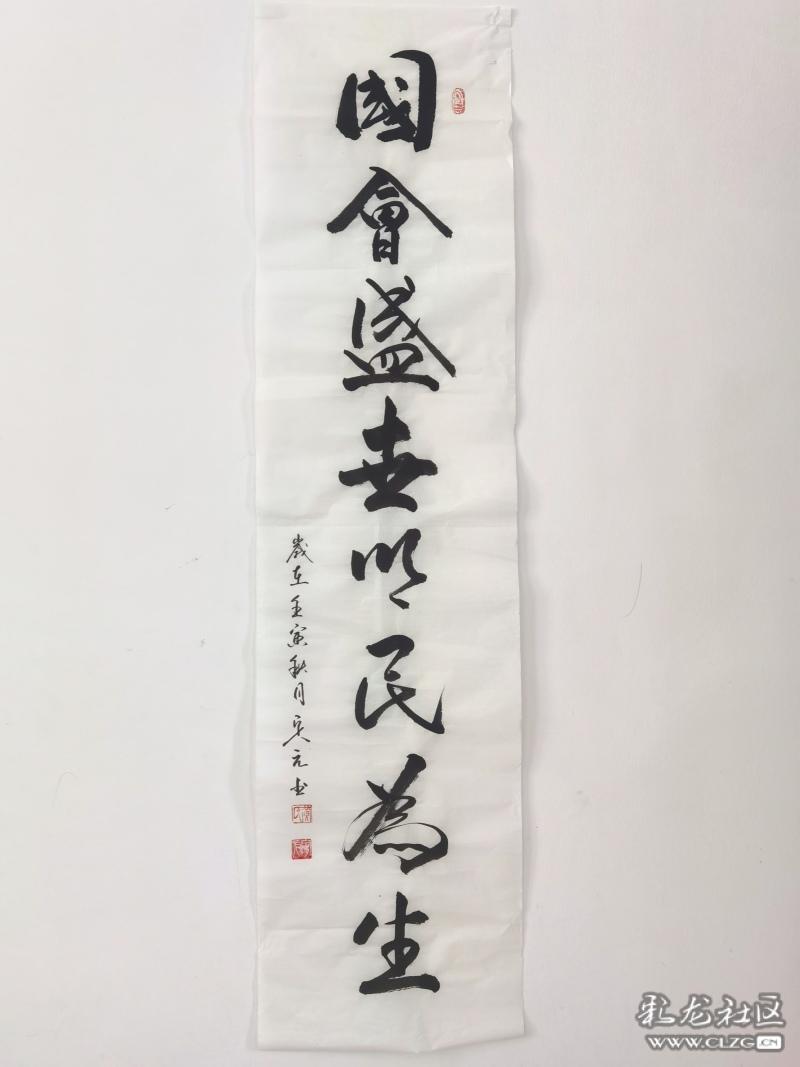 國會盛世以民為生
歲在壬寅秋月吴元书
彩龙社区
WWW.CLZG.CN